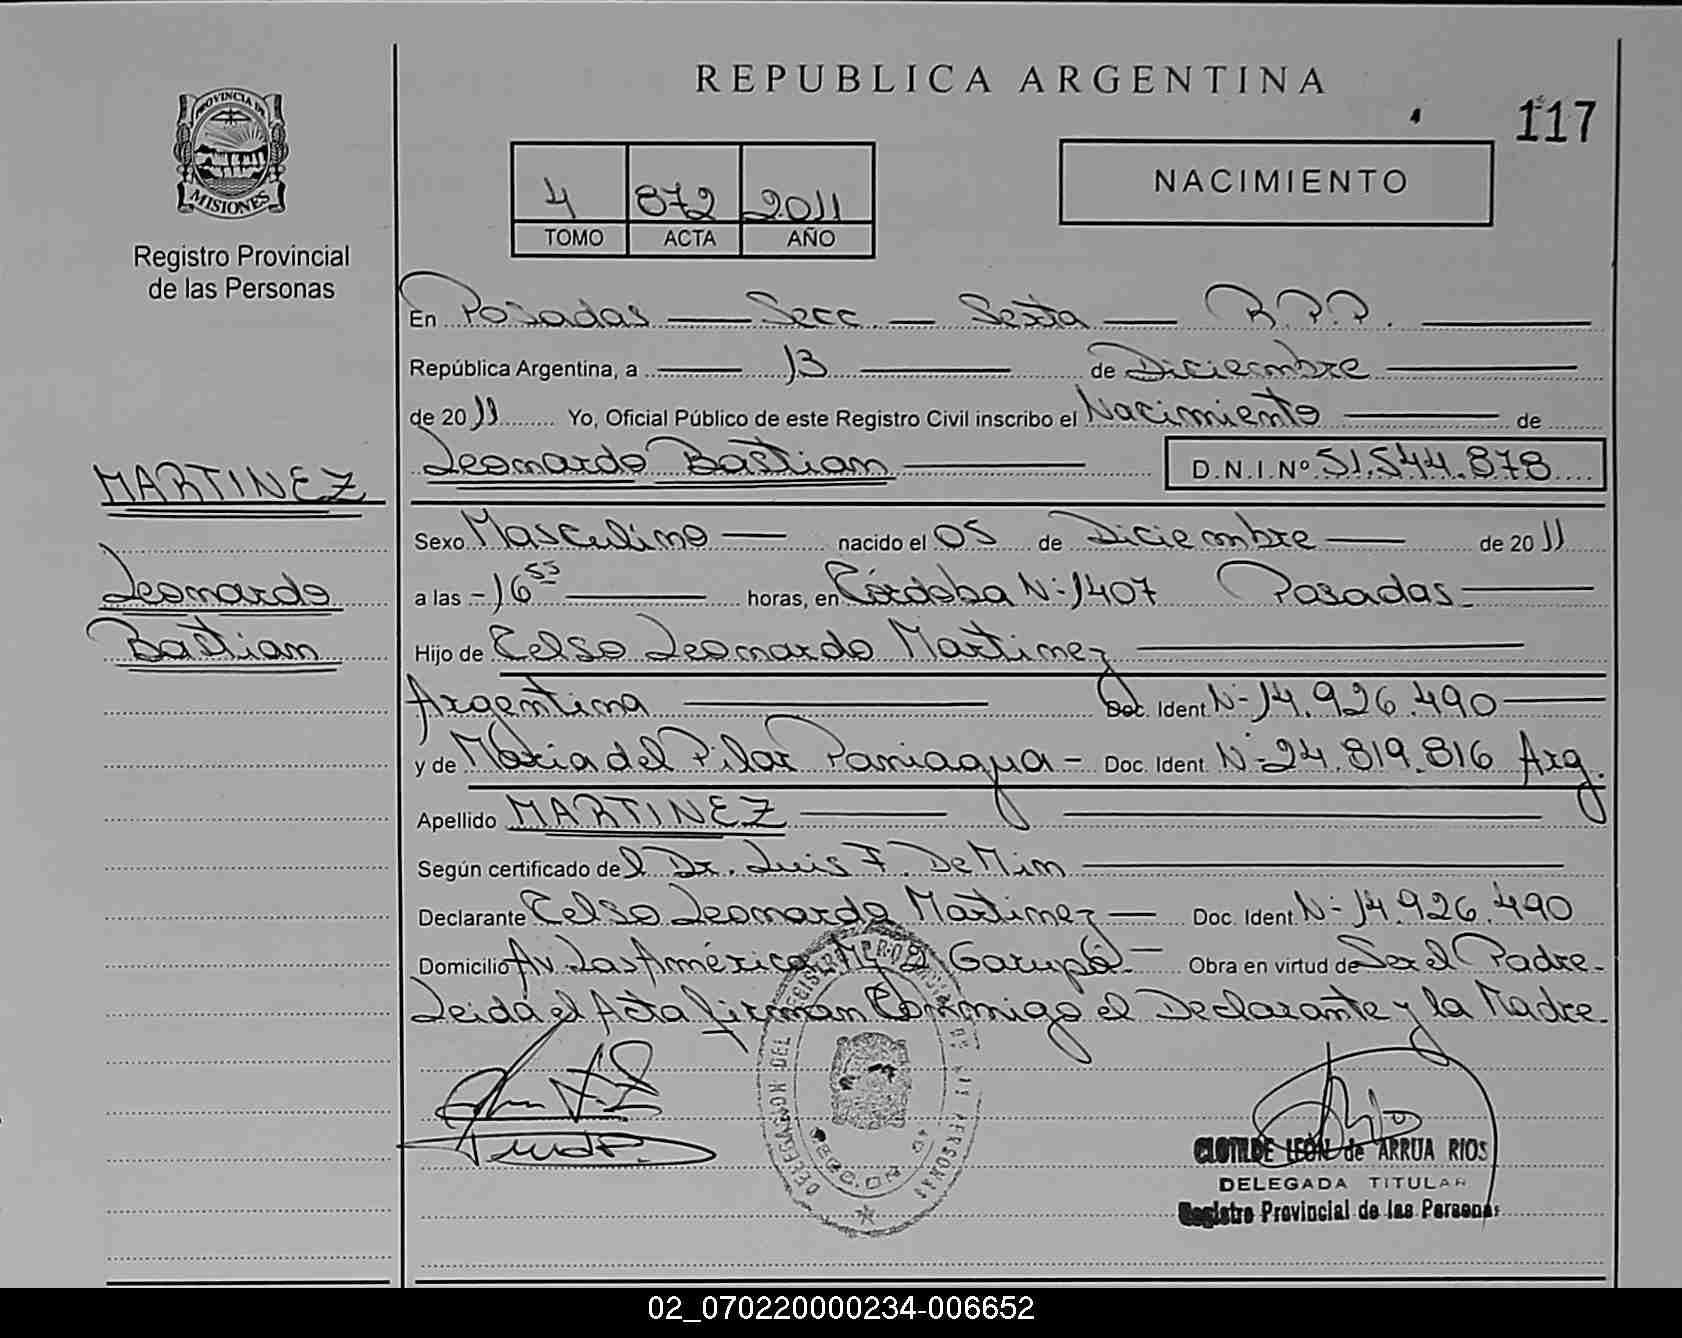 REPUBLICA ARGENTINA
117
PROVINCIA DE
MISIONES
Registro Provincial
de las Personas
4 872 2011
TOMO ACTA AÑO
NACIMIENTO
En Posadas — Secc. — Sexta — R.P.P.
República Argentina, a 13 de Diciembre
de 2011 Yo, Oficial Público de este Registro Civil inscribo el Nacimiento de
Leonardo Bastian D.N.I.Nº 51.544.878
MARTINEZ
Leonardo
Bastian
Sexo Masculino nacido el 05 de Diciembre de 2011
a las -16 55 horas, en Córdoba Nº 1407 Posadas
Hijo de Celso Leonardo Martinez
Argentina Doc. Ident Nº 14.926.490
y de Maria del Pilar Paniagua - Doc. Ident. Nº 24.819.816 Arg.
Apellido MARTINEZ
Según certificado del Dr. Luis F. De Mim
Declarante Celso Leonardo Martinez Doc. Ident. Nº 14.926.490
Domicilio Av. Las América Garupá Obra en virtud de Ser el Padre
Leida el Acta firman Conmigo el Declarante y la Madre.
DELEGACION DEL REGISTRO PROVINCIAL DE LAS PERSONAS
CLOTILDE LEON de ARRUA RIOS
DELEGADA TITULAR
Registro Provincial de las Personas
02_070220000234-006652